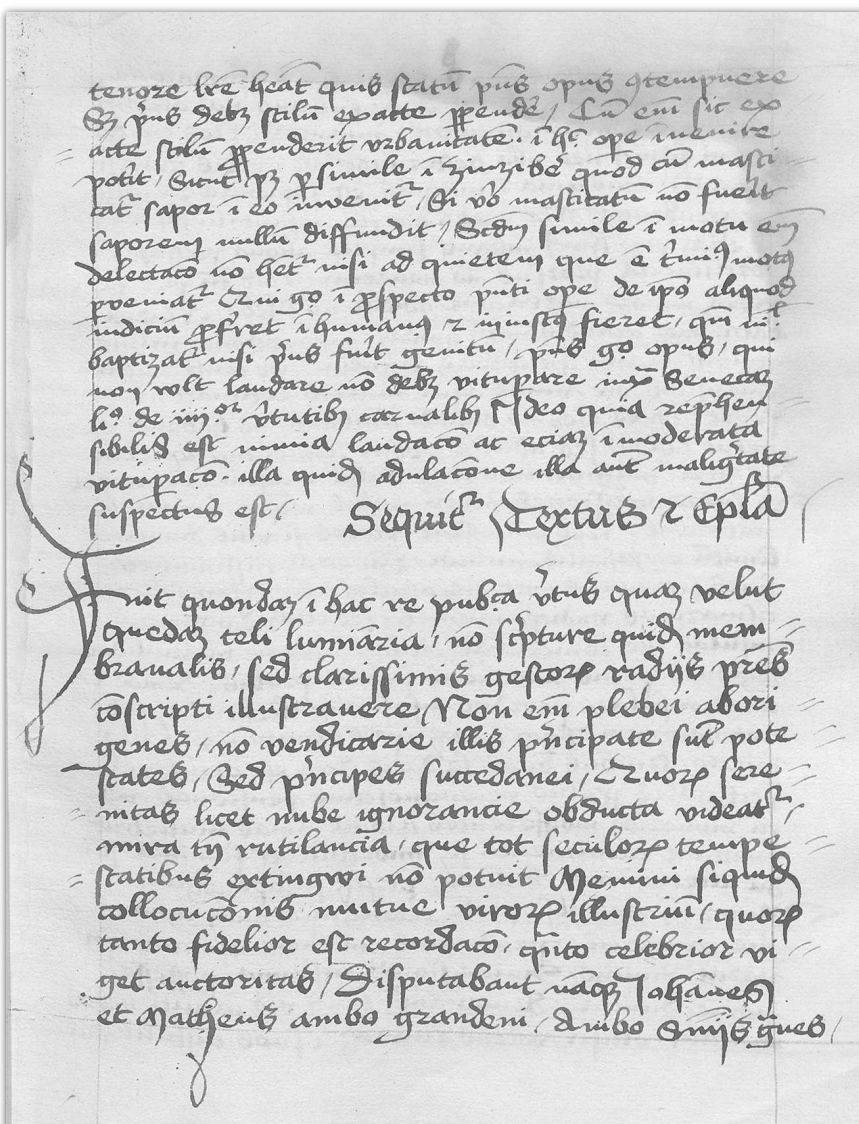 tenore lr̄e hēat quis statū p̄ns opus ꝯtempnere
Sꝫ p̄us debꝫ stilū exacte ꝑpendē / Cū em̄ sic ex
acte stilū ꝑpenderit urbanitatē ī hͦ ope īuenire
pot̄it / Sicut pꝫ ꝑ simile ī zinziberē quod cū masti
catʳ sapor ī eo inuenitʳ / Si v̄o masticatū nō fuer̄t
saporem nullū diffundit / Scd̄m simile ī motu em̄
delectacō nō hetʳ nisi ad quietem que ē t̄minꝰ motꝰ
ꝑueniatʳ Qui gͦ ī ꝓspecto pn̄ti ope de ip̄o aliquod
iudiciū ꝓfˢret ī humanū ⁊ iniustū fieret / qm̄ nil
baptizatʳ nisi p̄us fuˢit genitū / p̄ns gͦ opus / qui
non vult laudare nō debꝫ vituꝑare iuxͣ Senecaꝫ
liͦ de iiiiͦʳ v̄tutibꝫ carnalibꝫ Ideo quia rep̄hen
sibilis est nimia laudacō ac eciaꝫ īmoderata
vituꝑacō illa quidē adulacōne illa aut̄ malignˢtate
suspectus est /       Sequitʳ Textus ⁊ Epl̄a
Fuit quondaꝫ ī hac re pub̄ca v̄tus quaꝫ velut
quedaꝫ celi lumīaria / nō sc̄pture quidē mem
branalis / sed clarissimis gestoꝝ radijs pr̄es
cōscripti illustrauere / Non em̄ plebei abori
genes / nō vendicarie illis pⁱncipate sūt pote
states / Sed pⁱncipes succedanei / Quoꝝ sere
nitas licet nube ignorancie obducta videatʳ /
mira tn̄ rutilancia / que tot seculoꝝ tempe
statibus extingwi nō potuit Memini siquidē
collocucōnis mutue viroꝝ illustriū / quoꝝ
tanto fidelior est recordacō / qˢnto celebrior vi
get auctoritas / Disputabant nāqꝫ Johānes
et Matheus ambo grandeui / Ambo